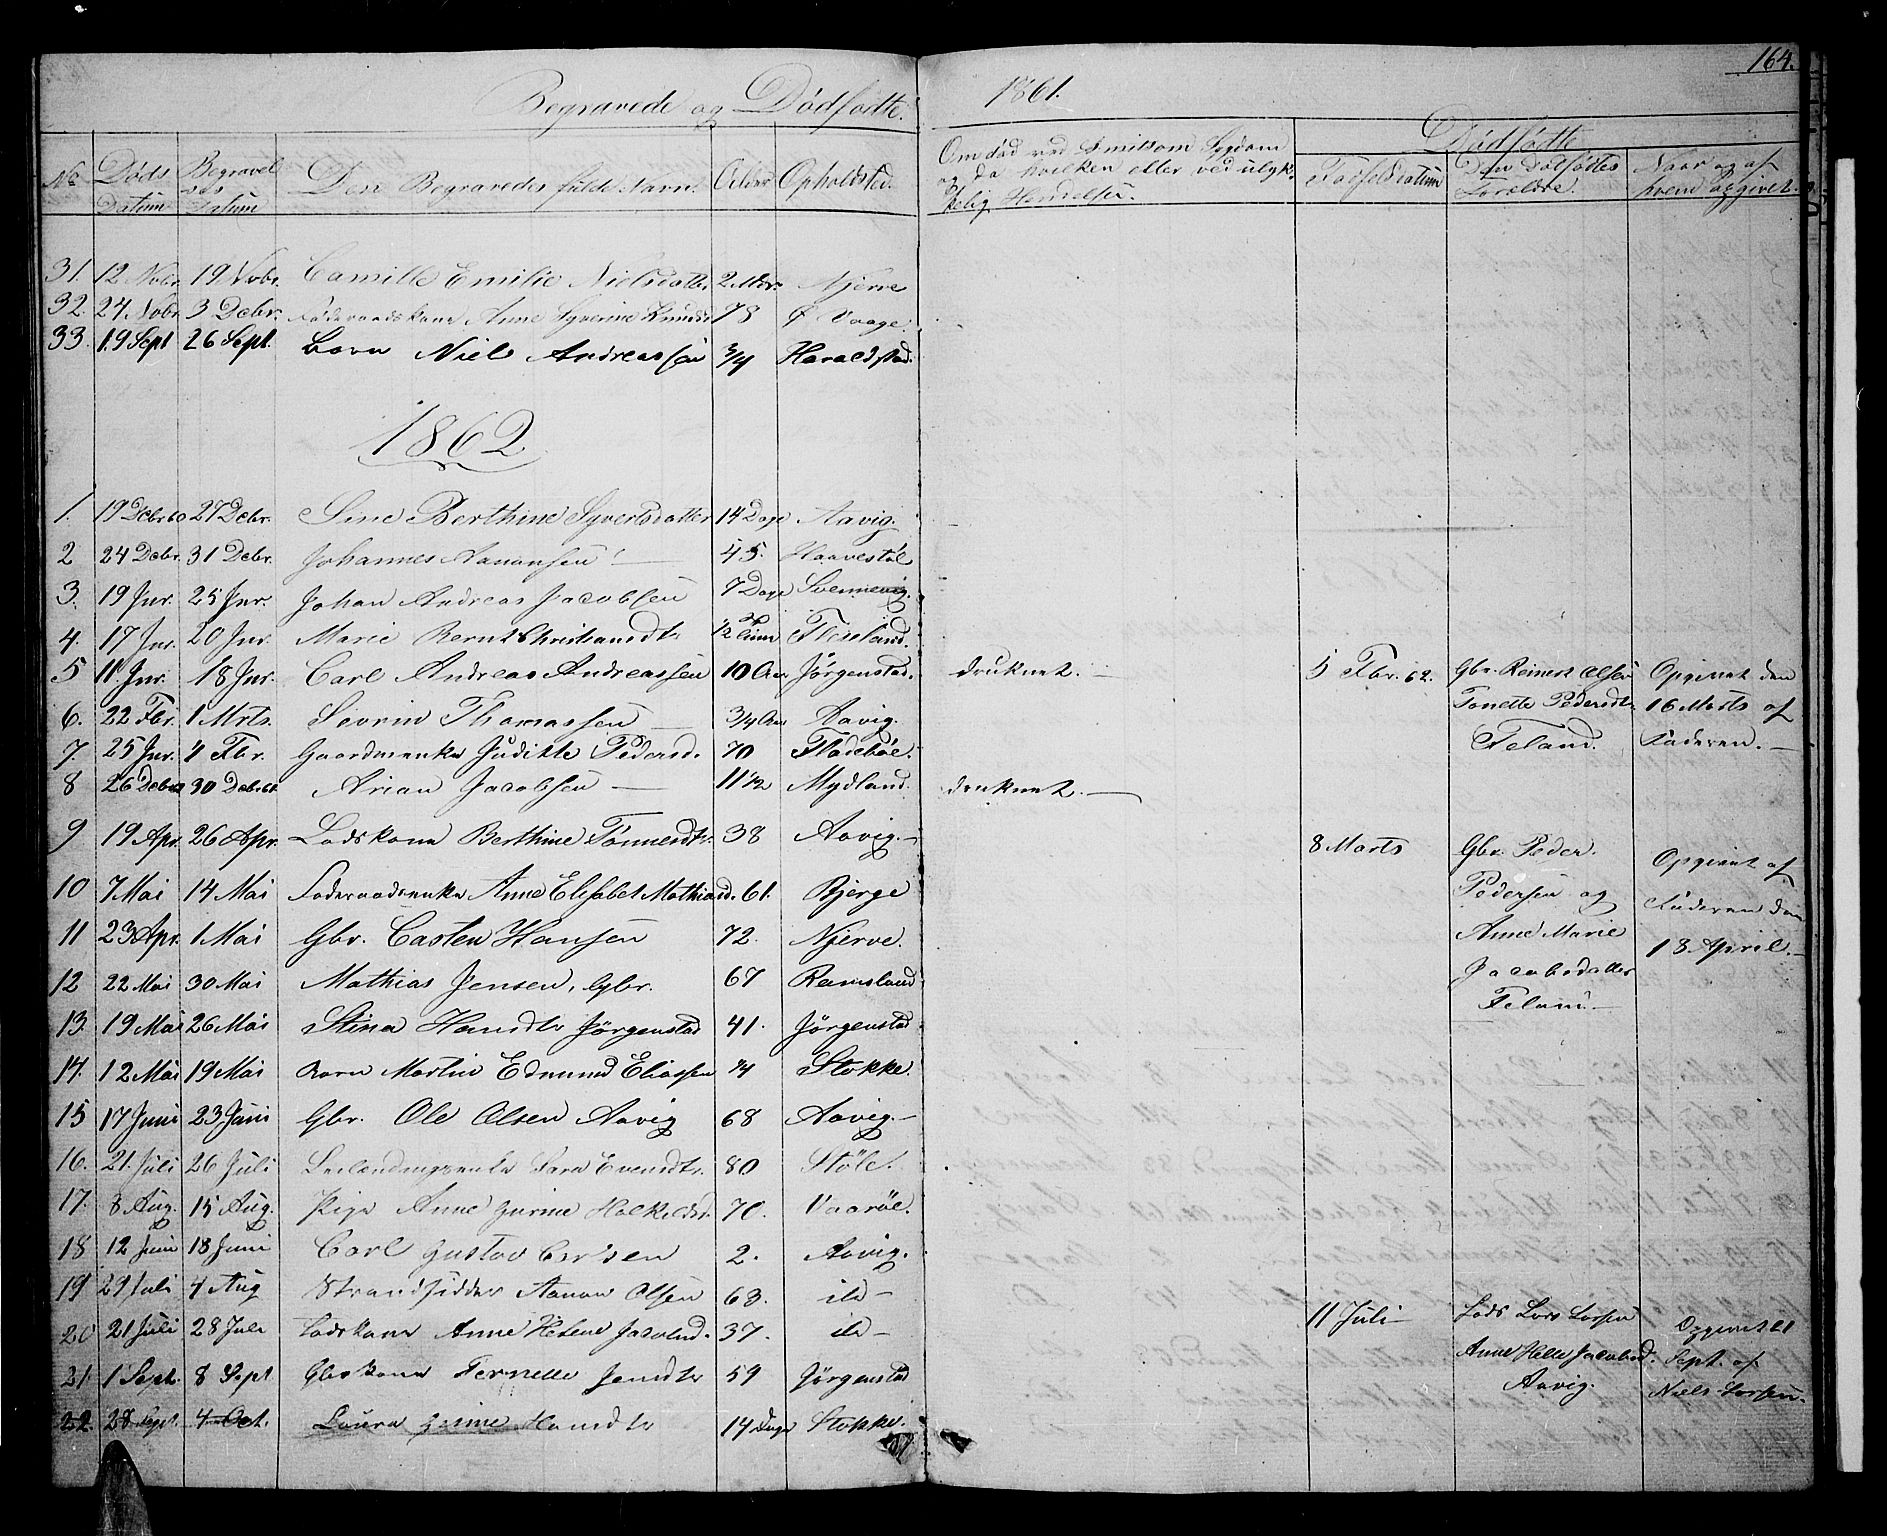 164.
Begravede og Dødfødte. 1861.
No Døds Datum Begravelses Datum Den Begravedes fulde Navn. Alder Opholdsted.
Om død ved Smitsom Sygdom og da hvilken eller ved ulykkelig Hendelse.
Dødfødte
Fødselsdatum Den Dødfødtes Forældre. Naar og af hvem opgivet.
31. 12 Nobr. 19 Nobr. Camille Emilie Nielsdatter 2 Mdr. Njerve
32. 24 Nobr. 3 Debr. Føderaadskone Anne Syverine Knudsd 78 Ø Vaage.
33. 19 Sept 26 Sept. Barn Niels Andreassen 3/4 Haraldstad.
1862
1. 19 Debr 27 Debr. Sine Berthine Syvertsdatter 14 Dage Aavig.
2 24 Debr. 31 Debr. Johannes Aanonsen 45. Haavestøl
3. 19 Jnr. 25 Jnr. Johan Andreas Jacobsen 7 Dage Svennevig.
4. 17 Jnr. 20 Jnr. Marie Bernt Christiansdtr 12 Timer
5 11. Jnr. 18 Jnr. Carl Andreas Andreassen 10 Aar Jørgenstad. druknet.
6. 22 Fbr. 1 Mrts. Sivrin Thomassen 3/4 Aar Aavig.
7. 25 Jnr. 4 Fbr. Gaardmenke Juditte Pedersd. 70
8 26 Debr 30 Debr. 61 Arian Jacobsen 11 1/2 Mydland. druknet.
9 19 Apr. 26 Apr. Lodskone Berthine Tønnesdtr. 38 Aavig.
10 7 Mai 14 Mai Føderaadsenke Anne Elisabet Mathiasd. 61. Bjerge
11 23 Apr. 1 Mai Gbr. Casten Hansen 72. Njerve.
12 22 Mai 30 Mai Mathias Jensen, Gbr. 67 Ramsland
13. 19 Mai 26 Mai Stina Hansdtr Jørgenstad 41. Jørgenstad
14. 12 Mai 19 Mai Barn Martin Edmund Eliassen 1/4 Stokke.
15 17 Juni 23 Juni Gbr. Ole Olsen Aavig 68 Aavig.
16. 21. Juli 26 Juli Sara Evensdtr. 80 Støle.
17. 8 Aug. 15 Aug. Pige Anne Gurine 70.
18 12 Juni 18 Juni Carl Gustav 2. Aavig.
19. 29 Juli 4 Aug Strandsidder Aanon Olsen 63. id
20 21 Juli 28 Juli Lodskone Anne Helene Jacobsd. 37. id
21. 1 Sept. 8 Sept Gbrkone Jensdtr 59 Jørgenstad
22. 28 Sept. 4 Oct. Laura Hansdtr 14 Dage Stokke.
5 Fbr. 62. Gbr. Reinert Olsen Tonette Pedersdtr. Feland. Opgivet den 16 Marts af Faderen.
8 Marts Gbr. Peder Pedersen og Anne Marie Jacobsdatter Feland Opgivet af Faderen den 18. April.
11 Juli Lods Lars Larsen Anne Helle Jacobsd. Aavig. Opgivet 21 Sept. af Niels Larsen.